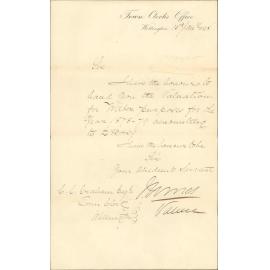 Town Clerk's Office
Wellington,
Sir
I have the honour to
hand you the Valuations
for Water purposes for the
Year 1878-79 amounting
to £
I have the honour to be
Sir
Your obedient Servant
Valuer
C. C. Graham Esq
Town Clerk
Wellington